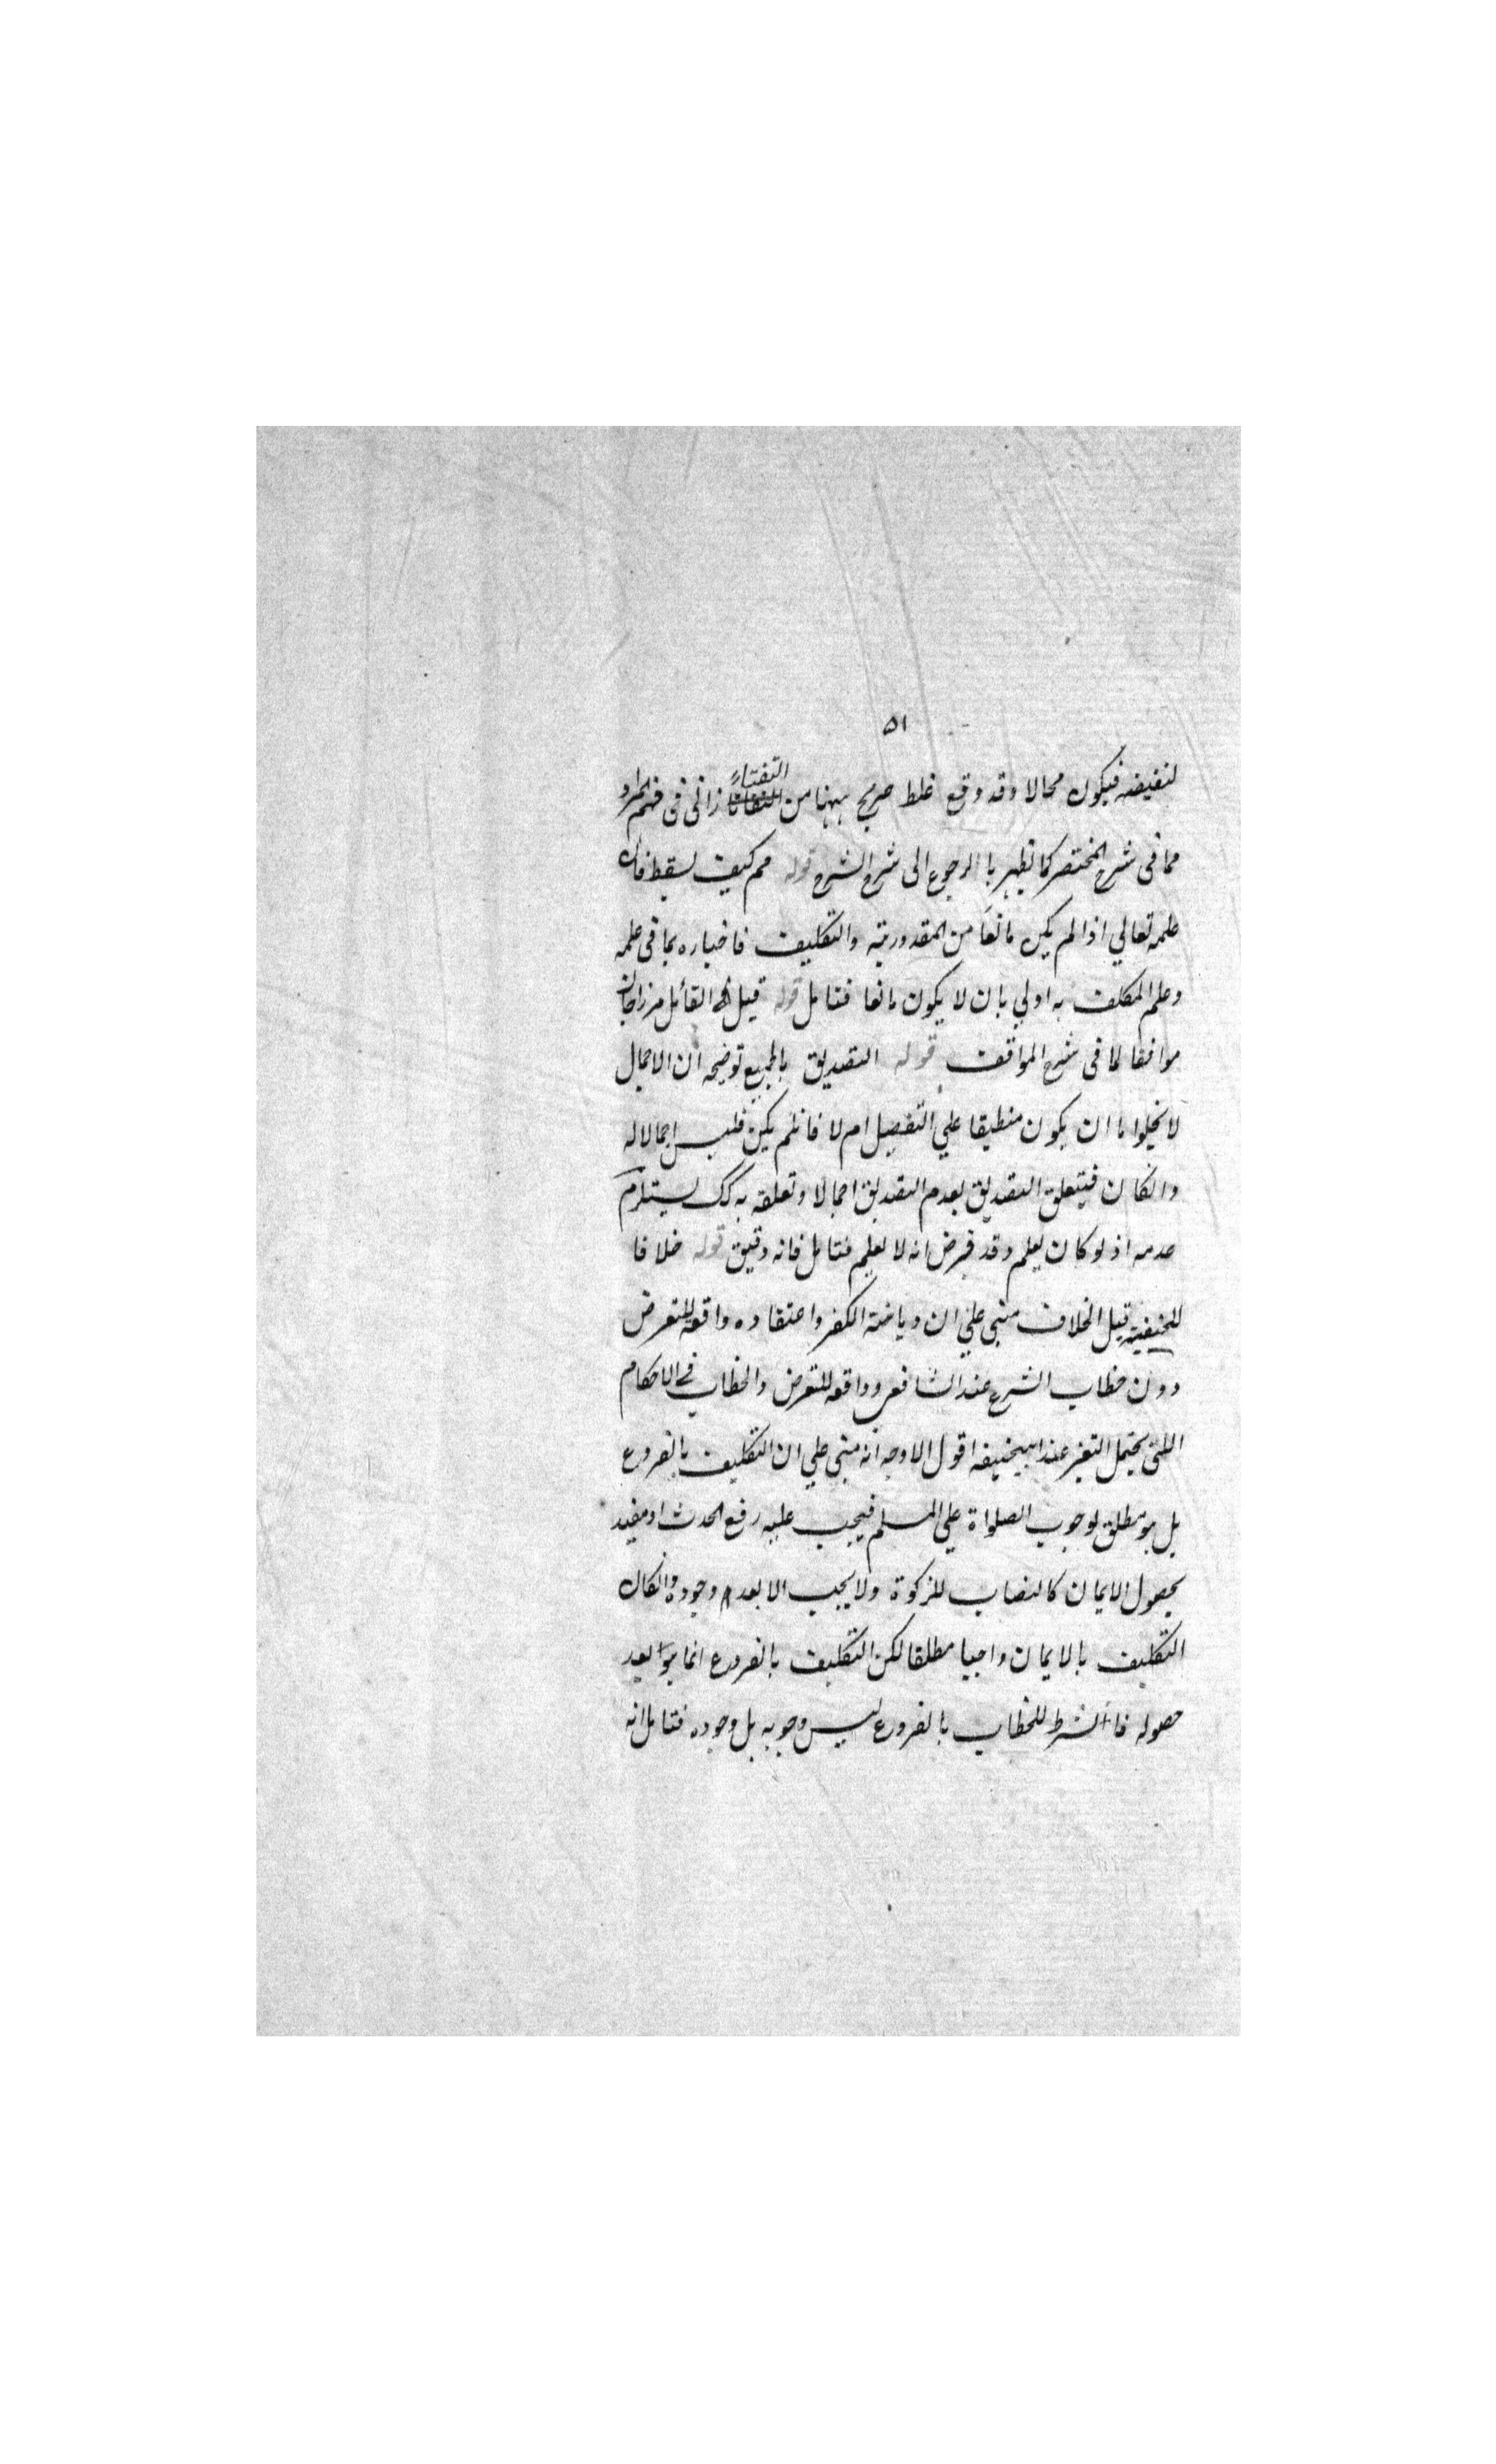 ٥١
لنقيضه فيكون محالا وقد وقع غلط صريح ههنا من التفتا زانى فى فهم المراد
مما فى شرح المختصر كما تظهر با الرجوع الى شرح الشرح قوله فكيف يسقط فان
علمه تعالي اذا لم يكن مانعا من المقدورية والتكليف فاخباره بما فى علمه
وعلم المكلف به اولي بان لا يكون مانعا فتامل قوله قيل القائل مرزاجان
موافقا لما فى شرح المواقف قوله التصديق بالجميع توضيحه ان الاجمال
لا يخلوا ما ان يكون منطبقا علي التفصيل ام لا فانلم يكن فليس اجمالا له
وانكان فيتعلق التصديق بعدم التصديق اجمالا وتعلقه به كك يستلزم
عدمه اذ لو كان يعلم وقد فرض انه لا يعلم فتامل فانه دقيق قوله خلافا
للحنفية قيل الخلاف مبنى علي ان ديانة الكفر واعتقاده واقعة للتعرض
دون خطاب الشرع عند الشافعى وواقعه للتعرض والخطاب فى الاحكام
اللتى يحتمل التغير عند ابيحنيفه اقول الاوجه انه مبنى علي ان التكليف بالفروع
بل هو مطلق لوجوب الصلواة علي المسلم فيجب عليه رفع الحدث او مقيد
بحصول الايمان كالنصاب للزكوة ولا يجب الا بعد وجوده وانكان
التكليف بالايمان واجبا مطلقا لكن التكليف بالفروع انما هو بعد
حصوله فا الشرط للخطاب بالفروع ليس وجوبه بل وجوده فتامل انه